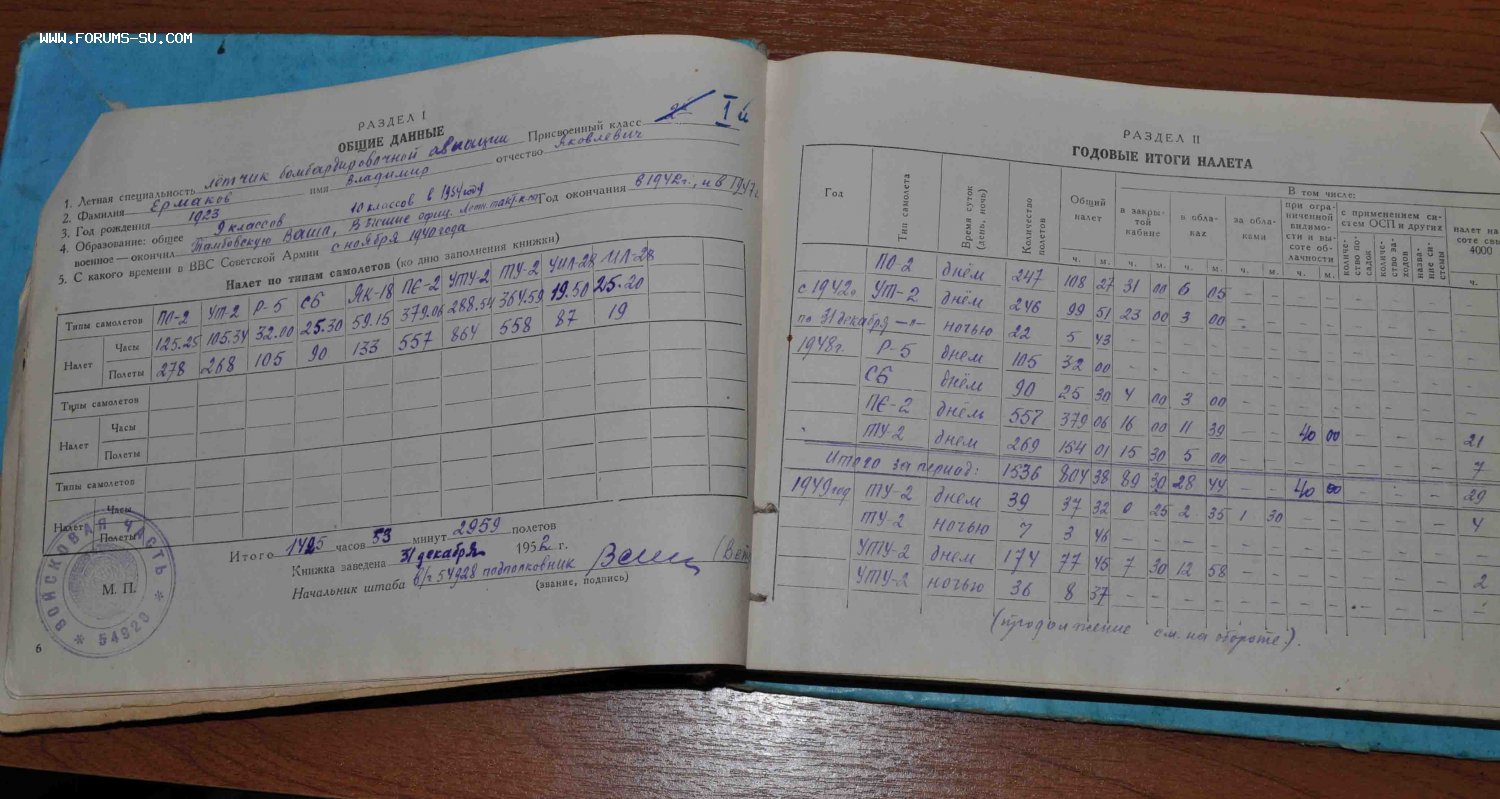 WWW.FORUMS-SU.COM
РАЗДЕЛ I
ОБЩИЕ ДАННЫЕ
1. Летная специальность лётчик бомбардировочной авиации Присвоенный класс 2й Iй
2. Фамилия Ермаков имя Владимир отчество Яковлевич
3. Год рождения 1923
4. Образование: общее 9 классов 10 классов в 1954 году
военное — окончил Тамбовскую Ваша, Высшие офиц. Год окончания в 1942г., и в 1947г.
5. С какого времени в ВВС Советской Армии с ноября 1940 года
Налет по типам самолетов (ко дню заполнения книжки)
Типы самолетов ПО-2 УТ-2 Р-5 СБ ЯК-18 ПЕ-2 УТУ-2 ТУ-2 УИЛ-28 ИЛ-28
Налет Часы 125.25 105.34 32.00 25.30 59.15 379.06 288.54 364.59 19.50 25.20
Полеты 278 268 105 90 133 557 864 558 87 19
Типы самолетов
Налет Часы
Полеты
Типы самолетов
Налет Часы
Полеты
Итого 1425 часов 53 минут 2959 полетов
Книжка заведена 31 декабря 1952 г.
Начальник штаба в/ч 54928 подполковник
(звание, подпись)
М. П.
ВОЙСКОВАЯ ЧАСТЬ * 54928 *
6
РАЗДЕЛ II
ГОДОВЫЕ ИТОГИ НАЛЕТА
Год Тип самолета Время суток (день, ночь) Количество полетов Общий налет В том числе:
в закрытой кабине в облаках за облаками при ограниченной видимости и высоте облачности с применением систем ОСП и других
количество посадок количество заходов название системы
налет на
соте свы
4000
ч. м. ч. м. ч. м. ч. м. ч. м. ч.
ПО-2 днём 247 108 27 31 00 6 05 – – – – – – –
с 1942г. УТ-2 днём 246 99 51 23 00 3 00 – – – – – – –
по 31 декабря –"– ночью 22 5 43 – – – – – – – – – – –
1948г. Р-5 днем 105 32 00 – – – – – – – – – – –
СБ днём 90 25 30 4 00 3 00 – – – – – – –
ПЕ-2 днём 557 379 06 16 00 11 39 – – 40 00 – – – 21
ТУ-2 днем 269 154 01 15 30 5 00 – – – – – – – 7
Итого за период: 1536 804 38 89 30 28 44 – – 40 00 – – – 29
1949 год ТУ-2 днем 39 37 32 0 25 2 35 1 30 – – – – – 4
ТУ-2 ночью 7 3 46 – – – – – – – – – – –
УТУ-2 днем 174 77 45 7 30 12 58 – – – – – – – 2
УТУ-2 ночью 36 8 37 – – – – – – – – – – –
(продолжение см. на обороте.)